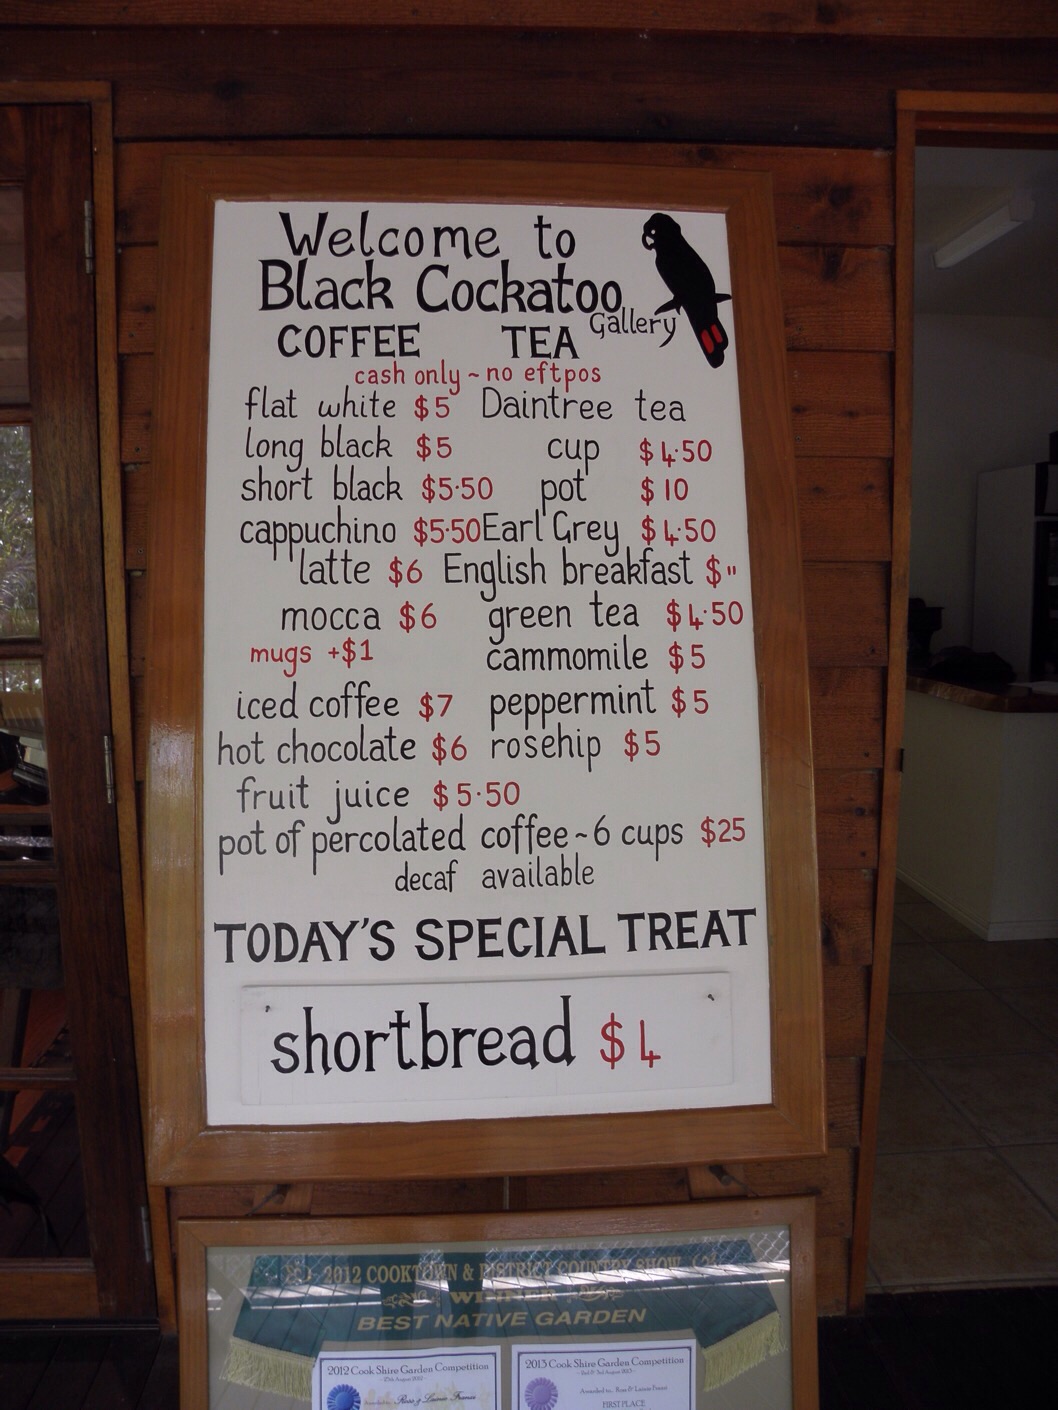 Welcome to
Black Cockatoo
Gallery
COFFEE TEA
cash only ~ no eftpos
flat white $5 Daintree tea
long black $5 cup $4.50
short black $5.50 pot $10
cappuchino $5.50 Earl Grey $4.50
latte $6 English breakfast $"
mocca $6 green tea $4.50
mugs +$1 cammomile $5
iced coffee $7 peppermint $5
hot chocolate $6 rosehip $5
fruit juice $5.50
pot of percolated coffee ~ 6 cups $25
decaf available
TODAY'S SPECIAL TREAT
shortbread $4
2012 COOKTOWN & DISTRICT COUNTRY SHOW
WINNER
BEST NATIVE GARDEN
2012 Cook Shire Garden Competition
2013 Cook Shire Garden Competition
FIRST PLACE